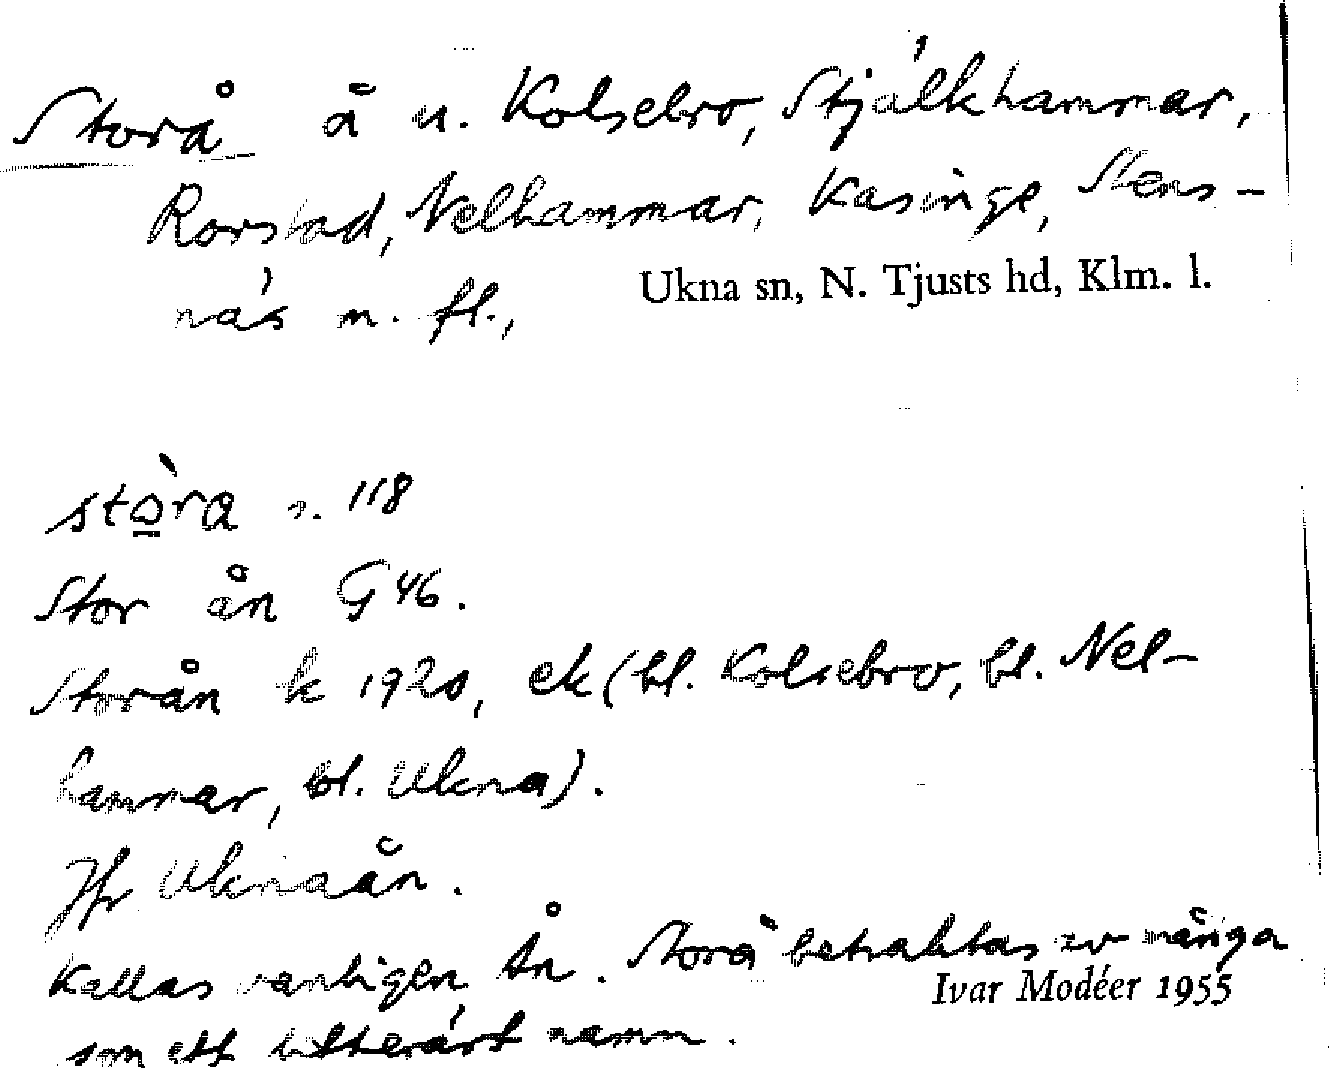 Storå å u. Kolsebro, Stjälkhammar,
Rorstad, Nelhammar, Kasinge, Stens-
näs m. fl.,
Ukna sn, N. Tjusts hd, Klm. l.
stò̱ra s. 118
Stor ån G 46.
Storån k 1920, ek (bl. Kolsebro, bl. Nel-
hammar, bl. Ukna).
Jfr Uknaån.
Kallas vanligen Ån. Storå betraktas av många
Ivar Modéer 1955
som ett litterärt namn.